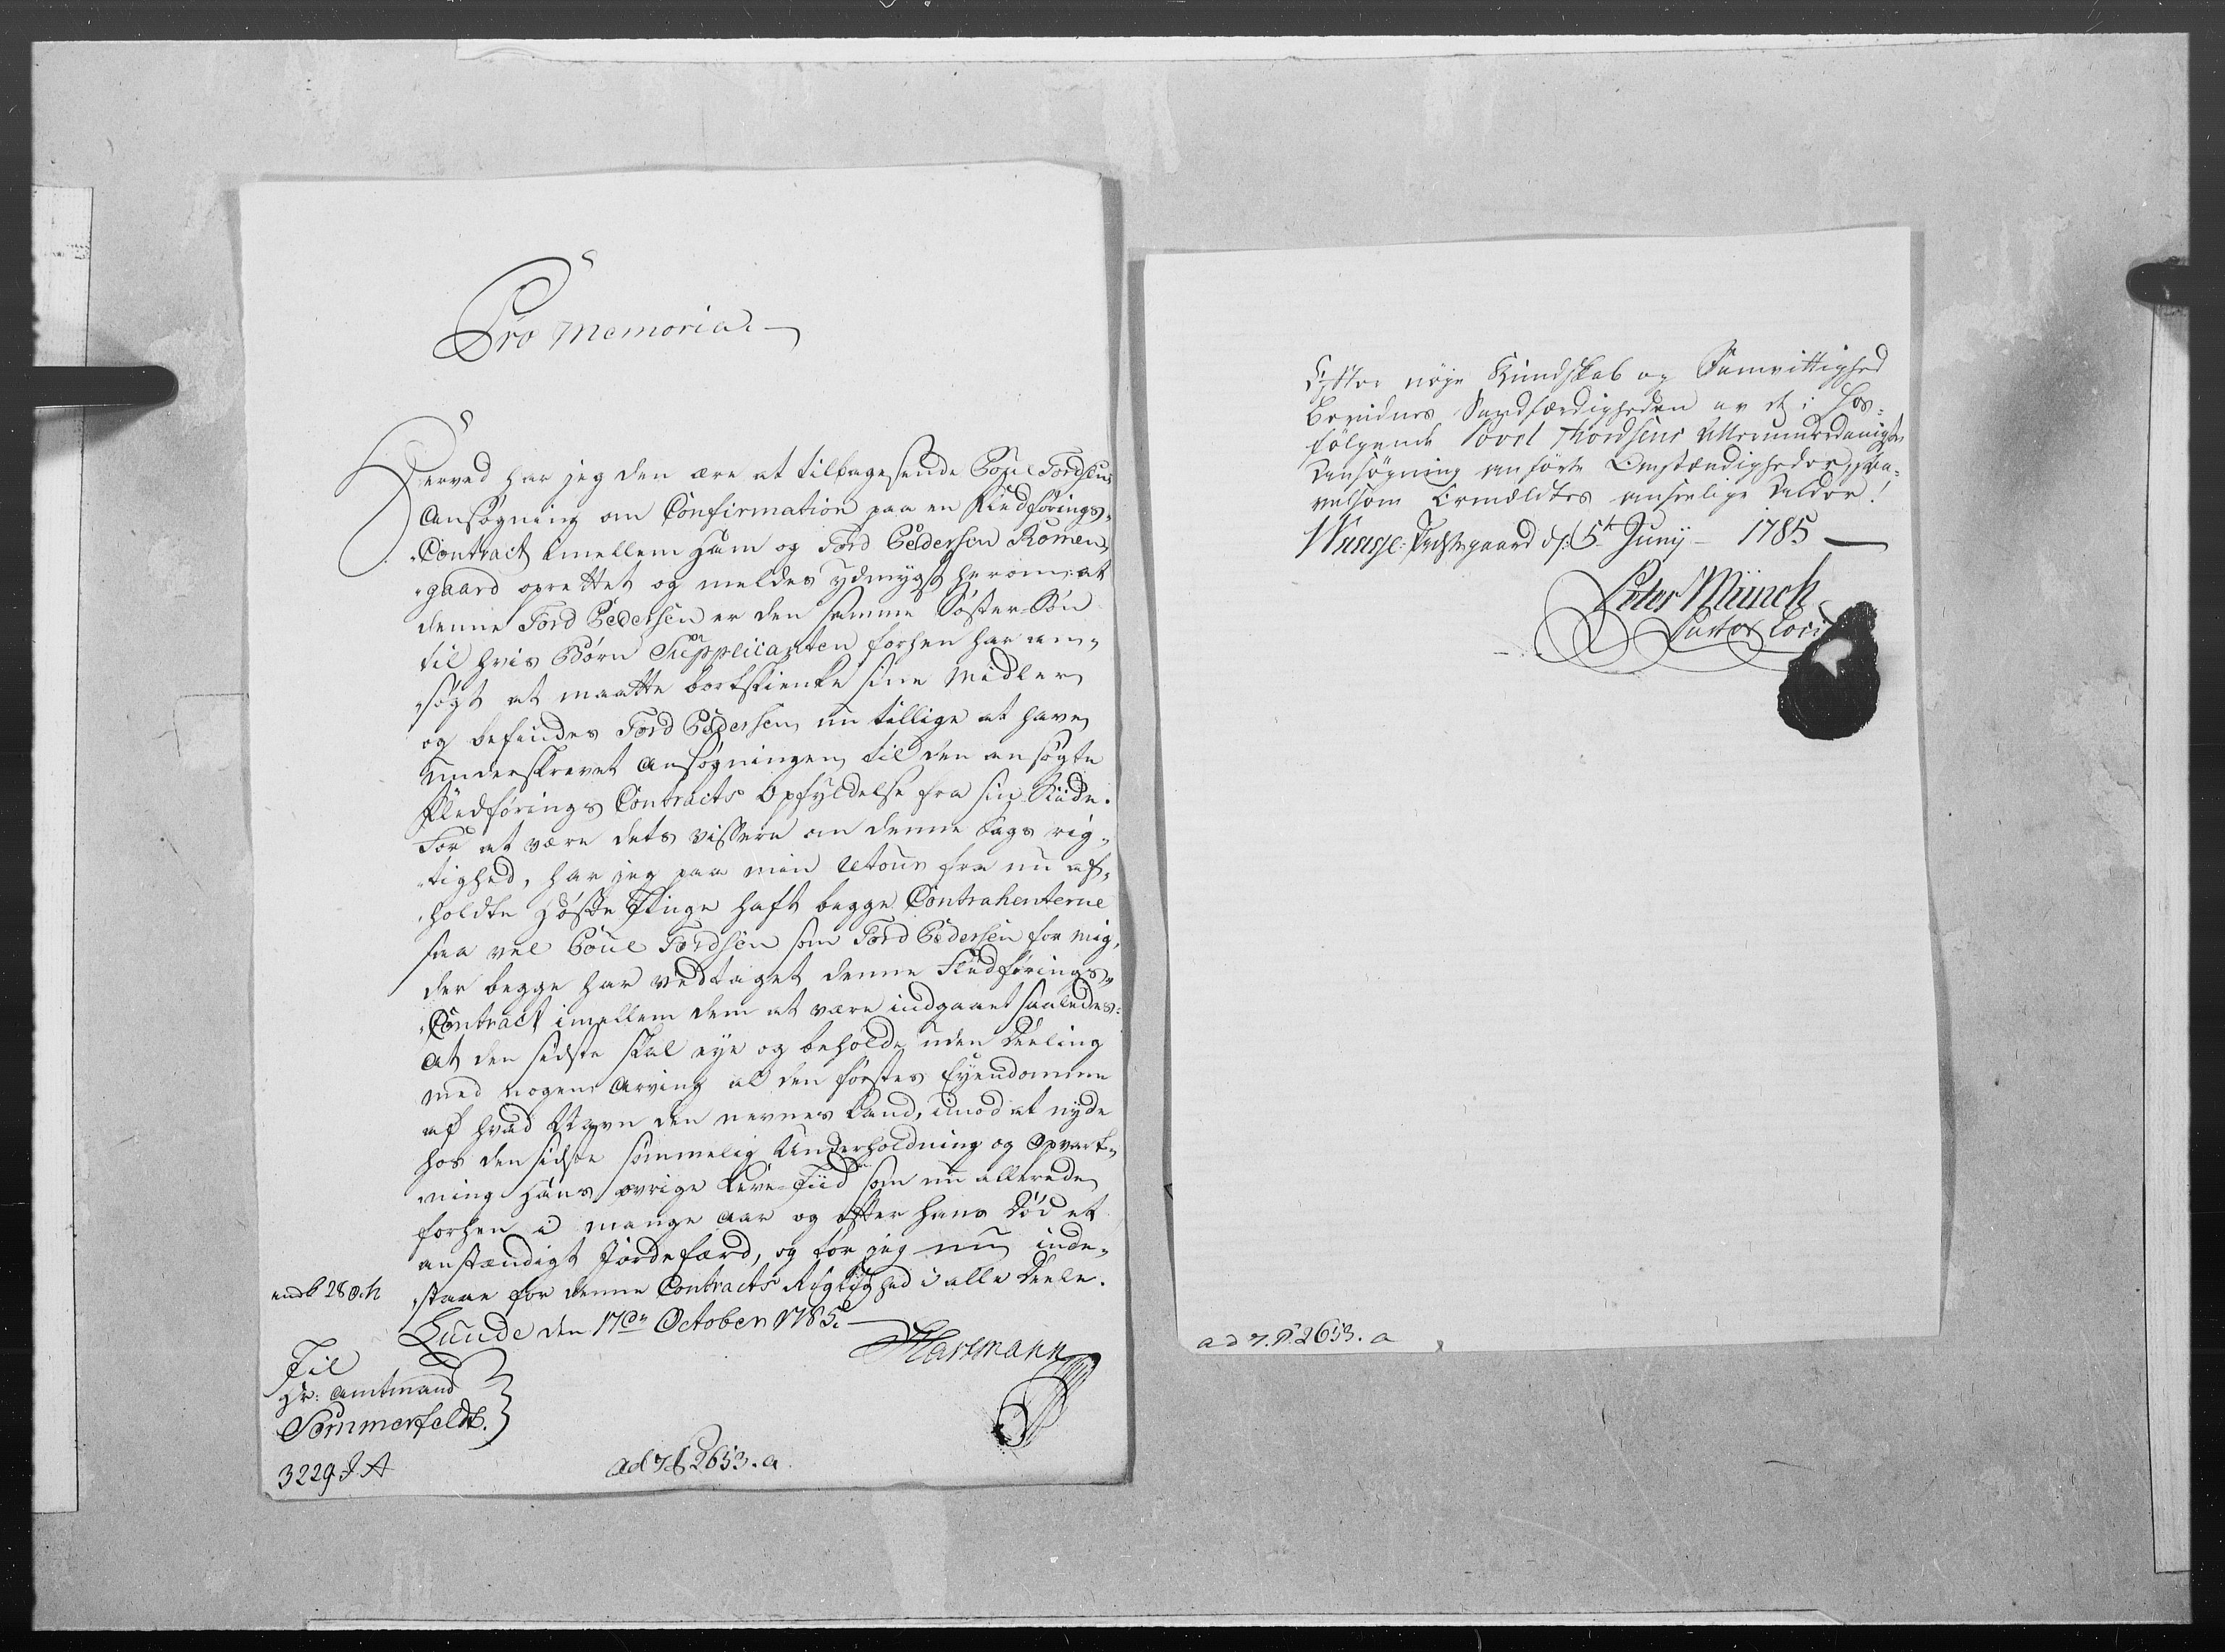 Pro Memoria.
Herved har jeg den ære at tilbagesende Poul Tordsens
Ansøgning om Confirmation paa en Fledførings-
Contract imellem Ham og Tord Pedersen Romen-
gaard oprettet og meldes ydmygst herom: at
denne Tord Pedersen er den samme Søster-Søn
til hvis Børn Supplicanten forhen har an-
søgt at maatte bortskienke sine Midler
og befindes Tord Pedersen nu tillige at have
underskrevet Ansøgningen til den ansøgte
Fledførings Contracts Opfyldelse fra sin Side.
For at være dets vissere om denne Sags rig-
tighed, har jeg paa min Retour fra nu af-
holdte Høste Tinge haft begge Contrahenterne
saa vel Poul Tordsen som Tord Pedersen for mig,
der begge har vedtaget denne Fledførings-
Contract imellem dem at være indgaaet saaledes:
at den sidste skal eye og beholde uden Deeling
med nogen Arving al den førstes Eyendomme
af hvad Navn den nevnes kand, imod at nyde
hos den sidste sømmelig Underholdning og Opvart-
ning Hans øvrige Leve-Tiid som nu allerede
forhen i mange Aar og efter hans Død et
anstændigt Jordefærd, og tør jeg nu inde-
staae for denne Contracts Rigtighed i alle Deele.
Lunde den 17de October 1785.
Hartmann
Til
Hr: Amtmand
Sommerfeldt.
3229 J. A
ad 2653. a.
Efter nøye Kundskab og Samvittighed
Bevidnes Sandfærdigheden av de i hos-
følgende Povel Thordsens Allerunderdanigste
Ansøgning anførte Omstændigheder, saa-
velsom Ermeldtes anseelige Alder!
Waage: Præstegaard d: 5t Juny 1785
Peter Münch
Pastor Loci
ad 2653. a